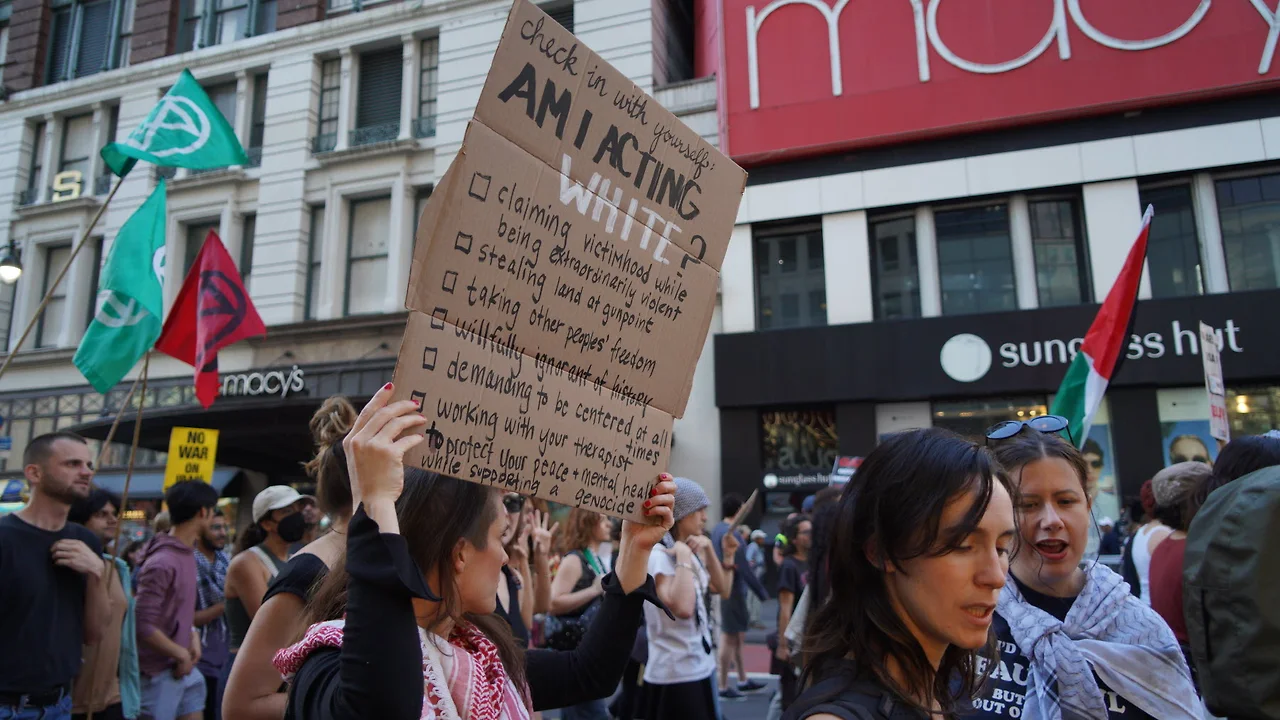 check in with yourself:
AM I ACTING
WHITE?
claiming victimhood while
being extraordinarily violent
stealing land at gunpoint
taking other peoples' freedom
willfully ignorant of history
demanding to be centered at all
times
working with your therapist
to protect your peace + mental health
while supporting a genocide
macy
macy's
S
sunglass hut
sunglass hut
NO
WAR
ON
BUT
OUT O